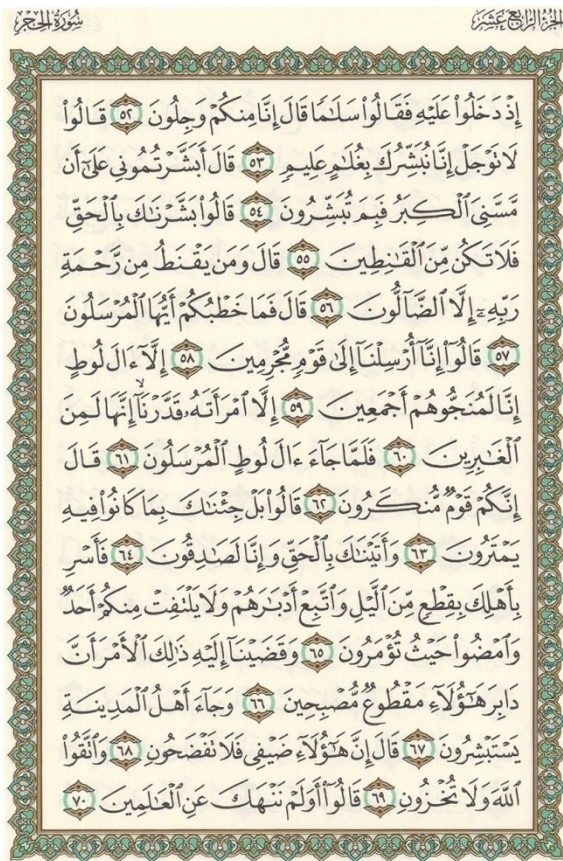 سُورَةُ الحِجْرِ
الجُزْءُ الرَّابِعَ عَشَرَ
إِذْ دَخَلُوا۟ عَلَيْهِ فَقَالُوا۟ سَلَٰمًا قَالَ إِنَّا مِنكُمْ وَجِلُونَ ٥٢ قَالُوا۟
لَا تَوْجَلْ إِنَّا نُبَشِّرُكَ بِغُلَٰمٍ عَلِيمٍ ٥٣ قَالَ أَبَشَّرْتُمُونِى عَلَىٰٓ أَن
مَّسَّنِىَ ٱلْكِبَرُ فَبِمَ تُبَشِّرُونَ ٥٤ قَالُوا۟ بَشَّرْنَٰكَ بِٱلْحَقِّ
فَلَا تَكُن مِّنَ ٱلْقَٰنِطِينَ ٥٥ قَالَ وَمَن يَقْنَطُ مِن رَّحْمَةِ
رَبِّهِۦٓ إِلَّا ٱلضَّآلُّونَ ٥٦ قَالَ فَمَا خَطْبُكُمْ أَيُّهَا ٱلْمُرْسَلُونَ
٥٧ قَالُوٓا۟ إِنَّآ أُرْسِلْنَآ إِلَىٰ قَوْمٍ مُّجْرِمِينَ ٥٨ إِلَّآ ءَالَ لُوطٍ
إِنَّا لَمُنَجُّوهُمْ أَجْمَعِينَ ٥٩ إِلَّا ٱمْرَأَتَهُۥ قَدَّرْنَآ إِنَّهَا لَمِنَ
ٱلْغَٰبِرِينَ ٦٠ فَلَمَّا جَآءَ ءَالَ لُوطٍ ٱلْمُرْسَلُونَ ٦١ قَالَ
إِنَّكُمْ قَوْمٌ مُّنكَرُونَ ٦٢ قَالُوا۟ بَلْ جِئْنَٰكَ بِمَا كَانُوا۟ فِيهِ
يَمْتَرُونَ ٦٣ وَأَتَيْنَٰكَ بِٱلْحَقِّ وَإِنَّا لَصَٰدِقُونَ ٦٤ فَأَسْرِ
بِأَهْلِكَ بِقِطْعٍ مِّنَ ٱلَّيْلِ وَٱتَّبِعْ أَدْبَٰرَهُمْ وَلَا يَلْتَفِتْ مِنكُمْ أَحَدٌ
وَٱمْضُوا۟ حَيْثُ تُؤْمَرُونَ ٦٥ وَقَضَيْنَآ إِلَيْهِ ذَٰلِكَ ٱلْأَمْرَ أَنَّ
دَابِرَ هَٰٓؤُلَآءِ مَقْطُوعٌ مُّصْبِحِينَ ٦٦ وَجَآءَ أَهْلُ ٱلْمَدِينَةِ
يَسْتَبْشِرُونَ ٦٧ قَالَ إِنَّ هَٰٓؤُلَآءِ ضَيْفِى فَلَا تَفْضَحُونِ ٦٨ وَٱتَّقُوا۟
ٱللَّهَ وَلَا تُخْزُونِ ٦٩ قَالُوٓا۟ أَوَلَمْ نَنْهَكَ عَنِ ٱلْعَٰلَمِينَ ٧٠